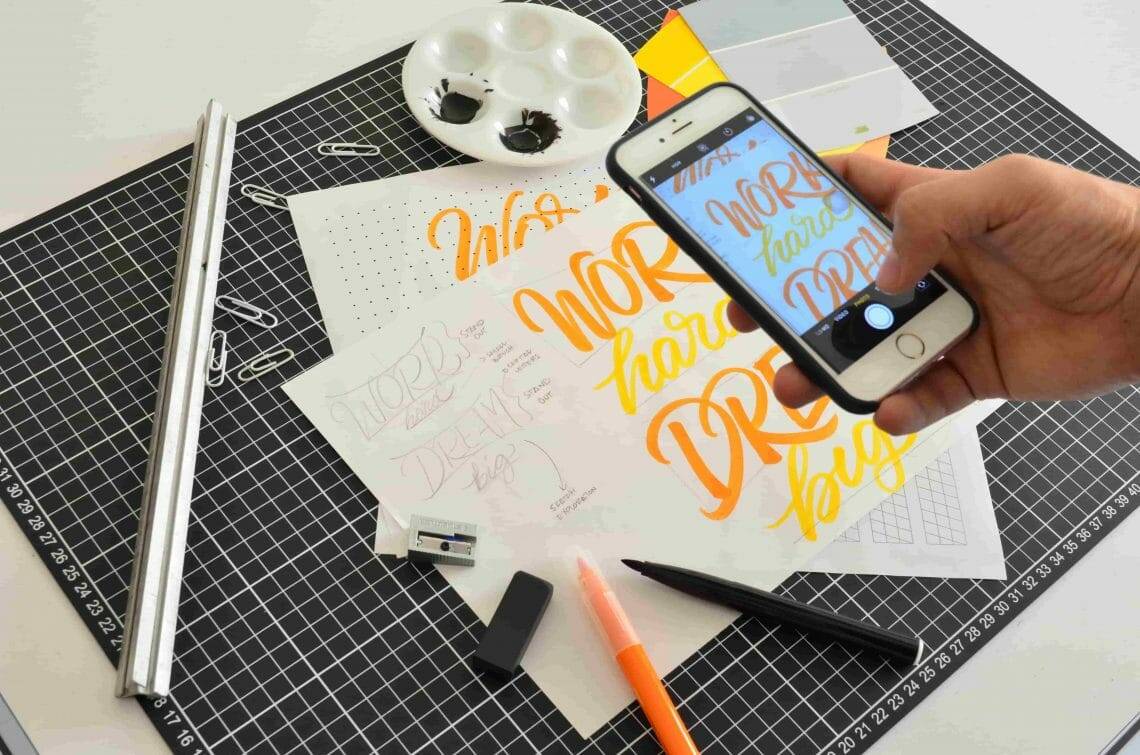 Work
WORK
hard
DREA
big
WORK
hard
DREAM
big
STAND
OUT
STAND
OUT
SKETCH
EXPLORATION
WORK
hard
DREA
VIDEO
PHOTO
31 30 29 28 27 26 25 24 23 22 21 20 19 18 17 16
20 21 22 23 24 25 26 27 28 29 30 31 32 33 34 35 36 37 38 39 40